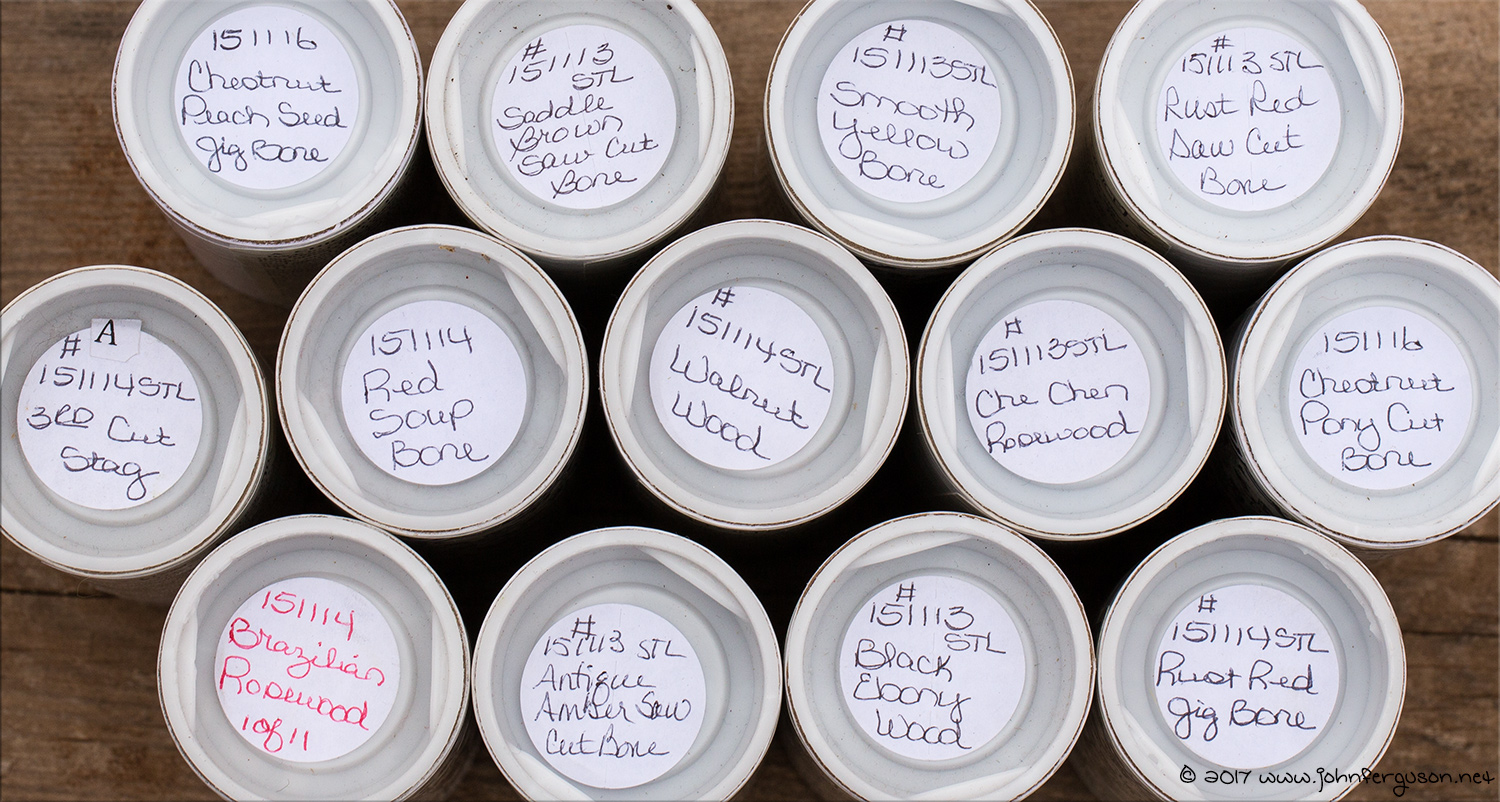 151116
Chestnut
Peach Seed
Jig Bone
#
151113
STL
Saddle
Brown
Saw Cut
Bone
#
151113STL
Smooth
Yellow
Bone
#
151113 STL
Rust Red
Saw Cut
Bone
A
#
151114STL
3RD Cut
Stag
151114
Red
Soup
Bone
#
151114STL
Walnut
Wood
#
151113STL
Che Chen
Rosewood
151116
Chestnut
Pony Cut
Bone
151114
Brazilian
Rosewood
1 of 11
#
151113 STL
Antique
Amber Saw
Cut Bone
#
151113
STL
Black
Ebony
Wood
#
151114STL
Rust Red
Jig Bone
© 2017 www.johnferguson.net